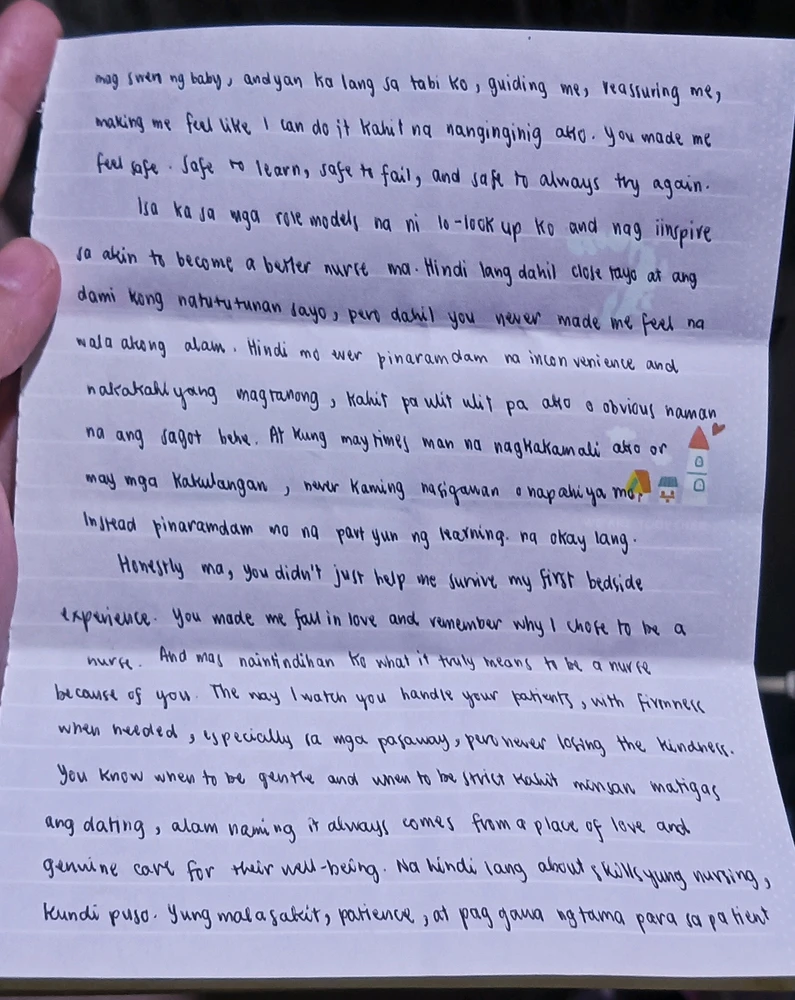 mag swen ng baby, andyan ka lang sa tabi ko, guiding me, reassuring me,
making me feel like I can do it kahit na nanginginig ako. You made me
feel safe. Safe to learn, safe to fail, and safe to always try again.
Isa ka sa mga role models na ni lo-look up ko and nag iinspire
sa akin to become a better nurse ma. Hindi lang dahil close tayo at ang
dami kong natututunan sayo, pero dahil you never made me feel na
wala akong alam. Hindi mo ever pinaramdam na inconvenience and
nakakahiyang magtanong, kahit pa ulit ulit pa ako o obvious naman
na ang sagot behe. At kung may times man na nagkakamali ako or
may mga kakulangan, never kaming nasigawan o napahiya mo.
Instead pinaramdam mo na part yun ng learning. na okay lang.
Honestly ma, you didn't just help me survive my first bedside
experience. You made me fall in love and remember why I chose to be a
nurse. And mas naintindihan ko what it truly means to be a nurse
because of you. The way I watch you handle your patients, with firmness
when needed, especially sa mga pasaway, pero never losing the kindness.
You know when to be gentle and when to be strict kahit minsan matigas
ang dating, alam naming it always comes from a place of love and
genuine care for their well-being. Na hindi lang about skills yung nursing,
kundi puso. Yung malasakit, patience, at pag gawa ng tama para sa patient